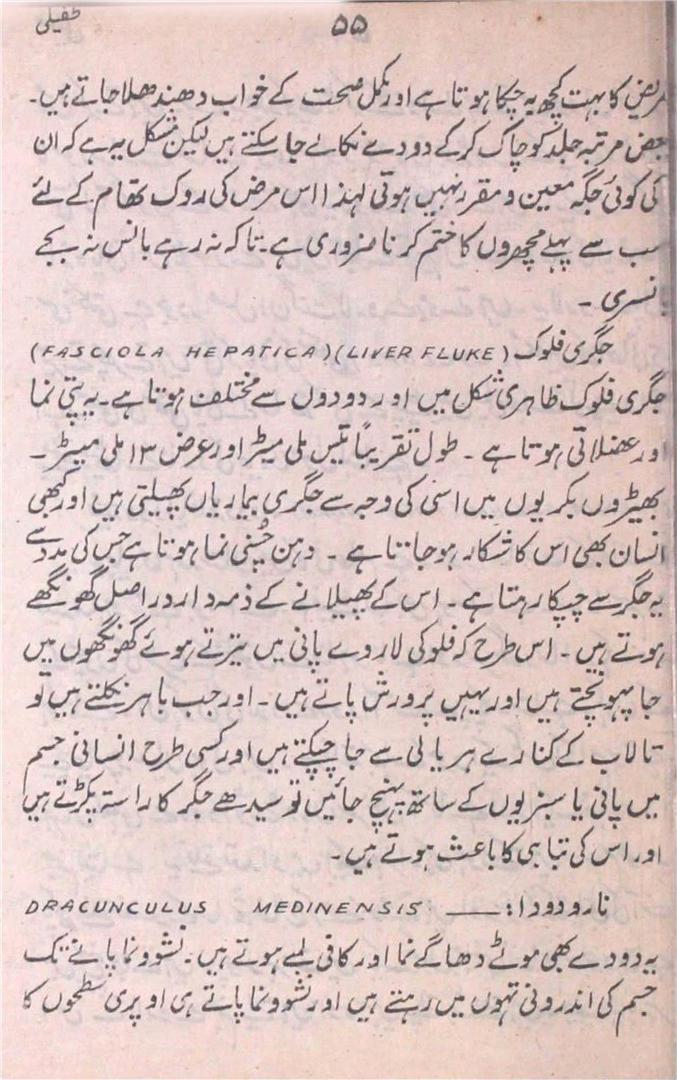 ۵۵ طفیلی
مریض کا بہت کچھ یہ چپکا ہوتا ہے اور مکمل صحت کے خواب دھندھلا جاتے ہیں۔
بعض مرتبہ جلد کو چاک کرکے دودے نکالے جا سکتے ہیں لیکن مشکل یہ ہے کہ ان
کی کوئی جگہ معین و مقرر نہیں ہوتی لہذا اس مرض کی روک تھام کے لئے
سب سے پہلے مچھروں کا ختم کرنا ضروری ہے۔ تاکہ نہ رہے بانس نہ بجے
بانسری۔
جگری فلوک (FASCIOLA HEPATICA) (LIVER FLUKE)
جگری فلوک ظاہری شکل میں اور دودوں سے مختلف ہوتا ہے۔ یہ پتی نما
اور عضلاتی ہوتا ہے۔ طول تقریباً تیس ملی میٹر اور عرض ۱۳ ملی میٹر۔
بھیڑوں بکریوں میں اسی کی وجہ سے جگری بیماریاں پھیلتی ہیں اور کبھی
انسان بھی اس کا شکار ہو جاتا ہے۔ دہن چُسنی نما ہوتا ہے جس کی مدد سے
یہ جگر سے چپکا رہتا ہے۔ اس کے پھیلانے کے ذمہ دار دراصل گھونگھے
ہوتے ہیں۔ اس طرح کہ فلوکی لاروے پانی میں تیرتے ہوئے گھونگھوں میں
جا پہونچتے ہیں اور یہیں پرورش پاتے ہیں۔ اور جب باہر نکلتے ہیں تو
تالاب کے کنارے ہریالی سے جا چپکتے ہیں اور کسی طرح انسانی جسم
میں پانی یا سبزیوں کے ساتھ پہنچ جائیں تو سیدھے جگر کا راستہ پکڑتے ہیں
اور اس کی تباہی کا باعث ہوتے ہیں۔
نارو دودا:ــــــ DRACUNCULUS MEDINENSIS
یہ دودے بھی موٹے دھاگے نما اور کافی لمبے ہوتے ہیں۔ نشوونما پانے تک
جسم کی اندرونی تہوں میں رہتے ہیں اور نشوونما پاتے ہی اوپری سطحوں کا